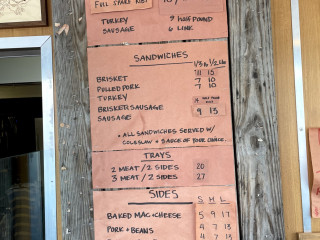 FULL SPARE RIB
TURKEY 9 HALF POUND
SAUSAGE 6 LINK
SANDWICHES
1/3 lb 1/2 lb
BRISKET 11 15
PULLED PORK 7 10
TURKEY 7 10
BRISKET SAUSAGE
SAUSAGE 9 13
* ALL SANDWICHES SERVED W/
COLESLAW & SAUCE OF YOUR CHOICE
TRAYS
2 MEAT / 2 SIDES 20
3 MEAT / 2 SIDES 27
SIDES
S M L
BAKED MAC + CHEESE 5 9 17
PORK + BEANS 4 7 13
4 7 13